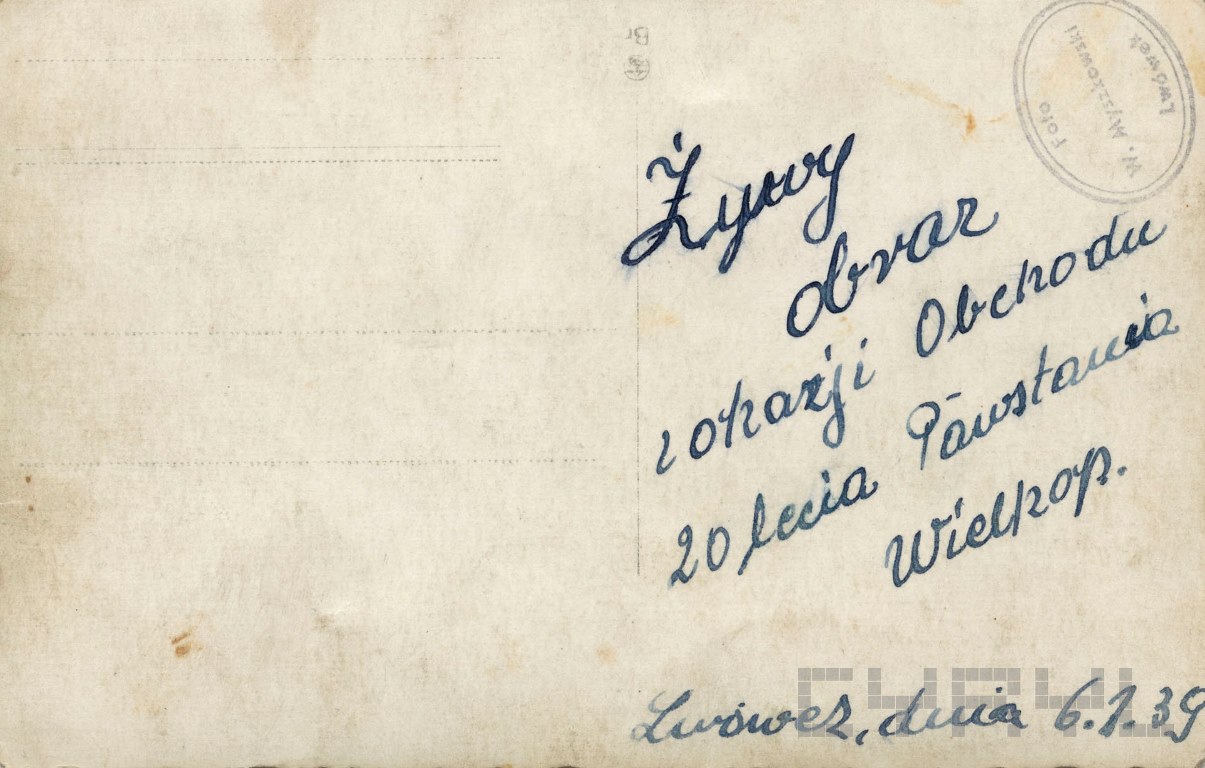 Foto
W. Myszkowski
Lwówek
Żywy
obraz
z okazji Obchodu
20 lecia Powstania
Wielkop.
Lwówek, dnia 6.1.39
CYRYL